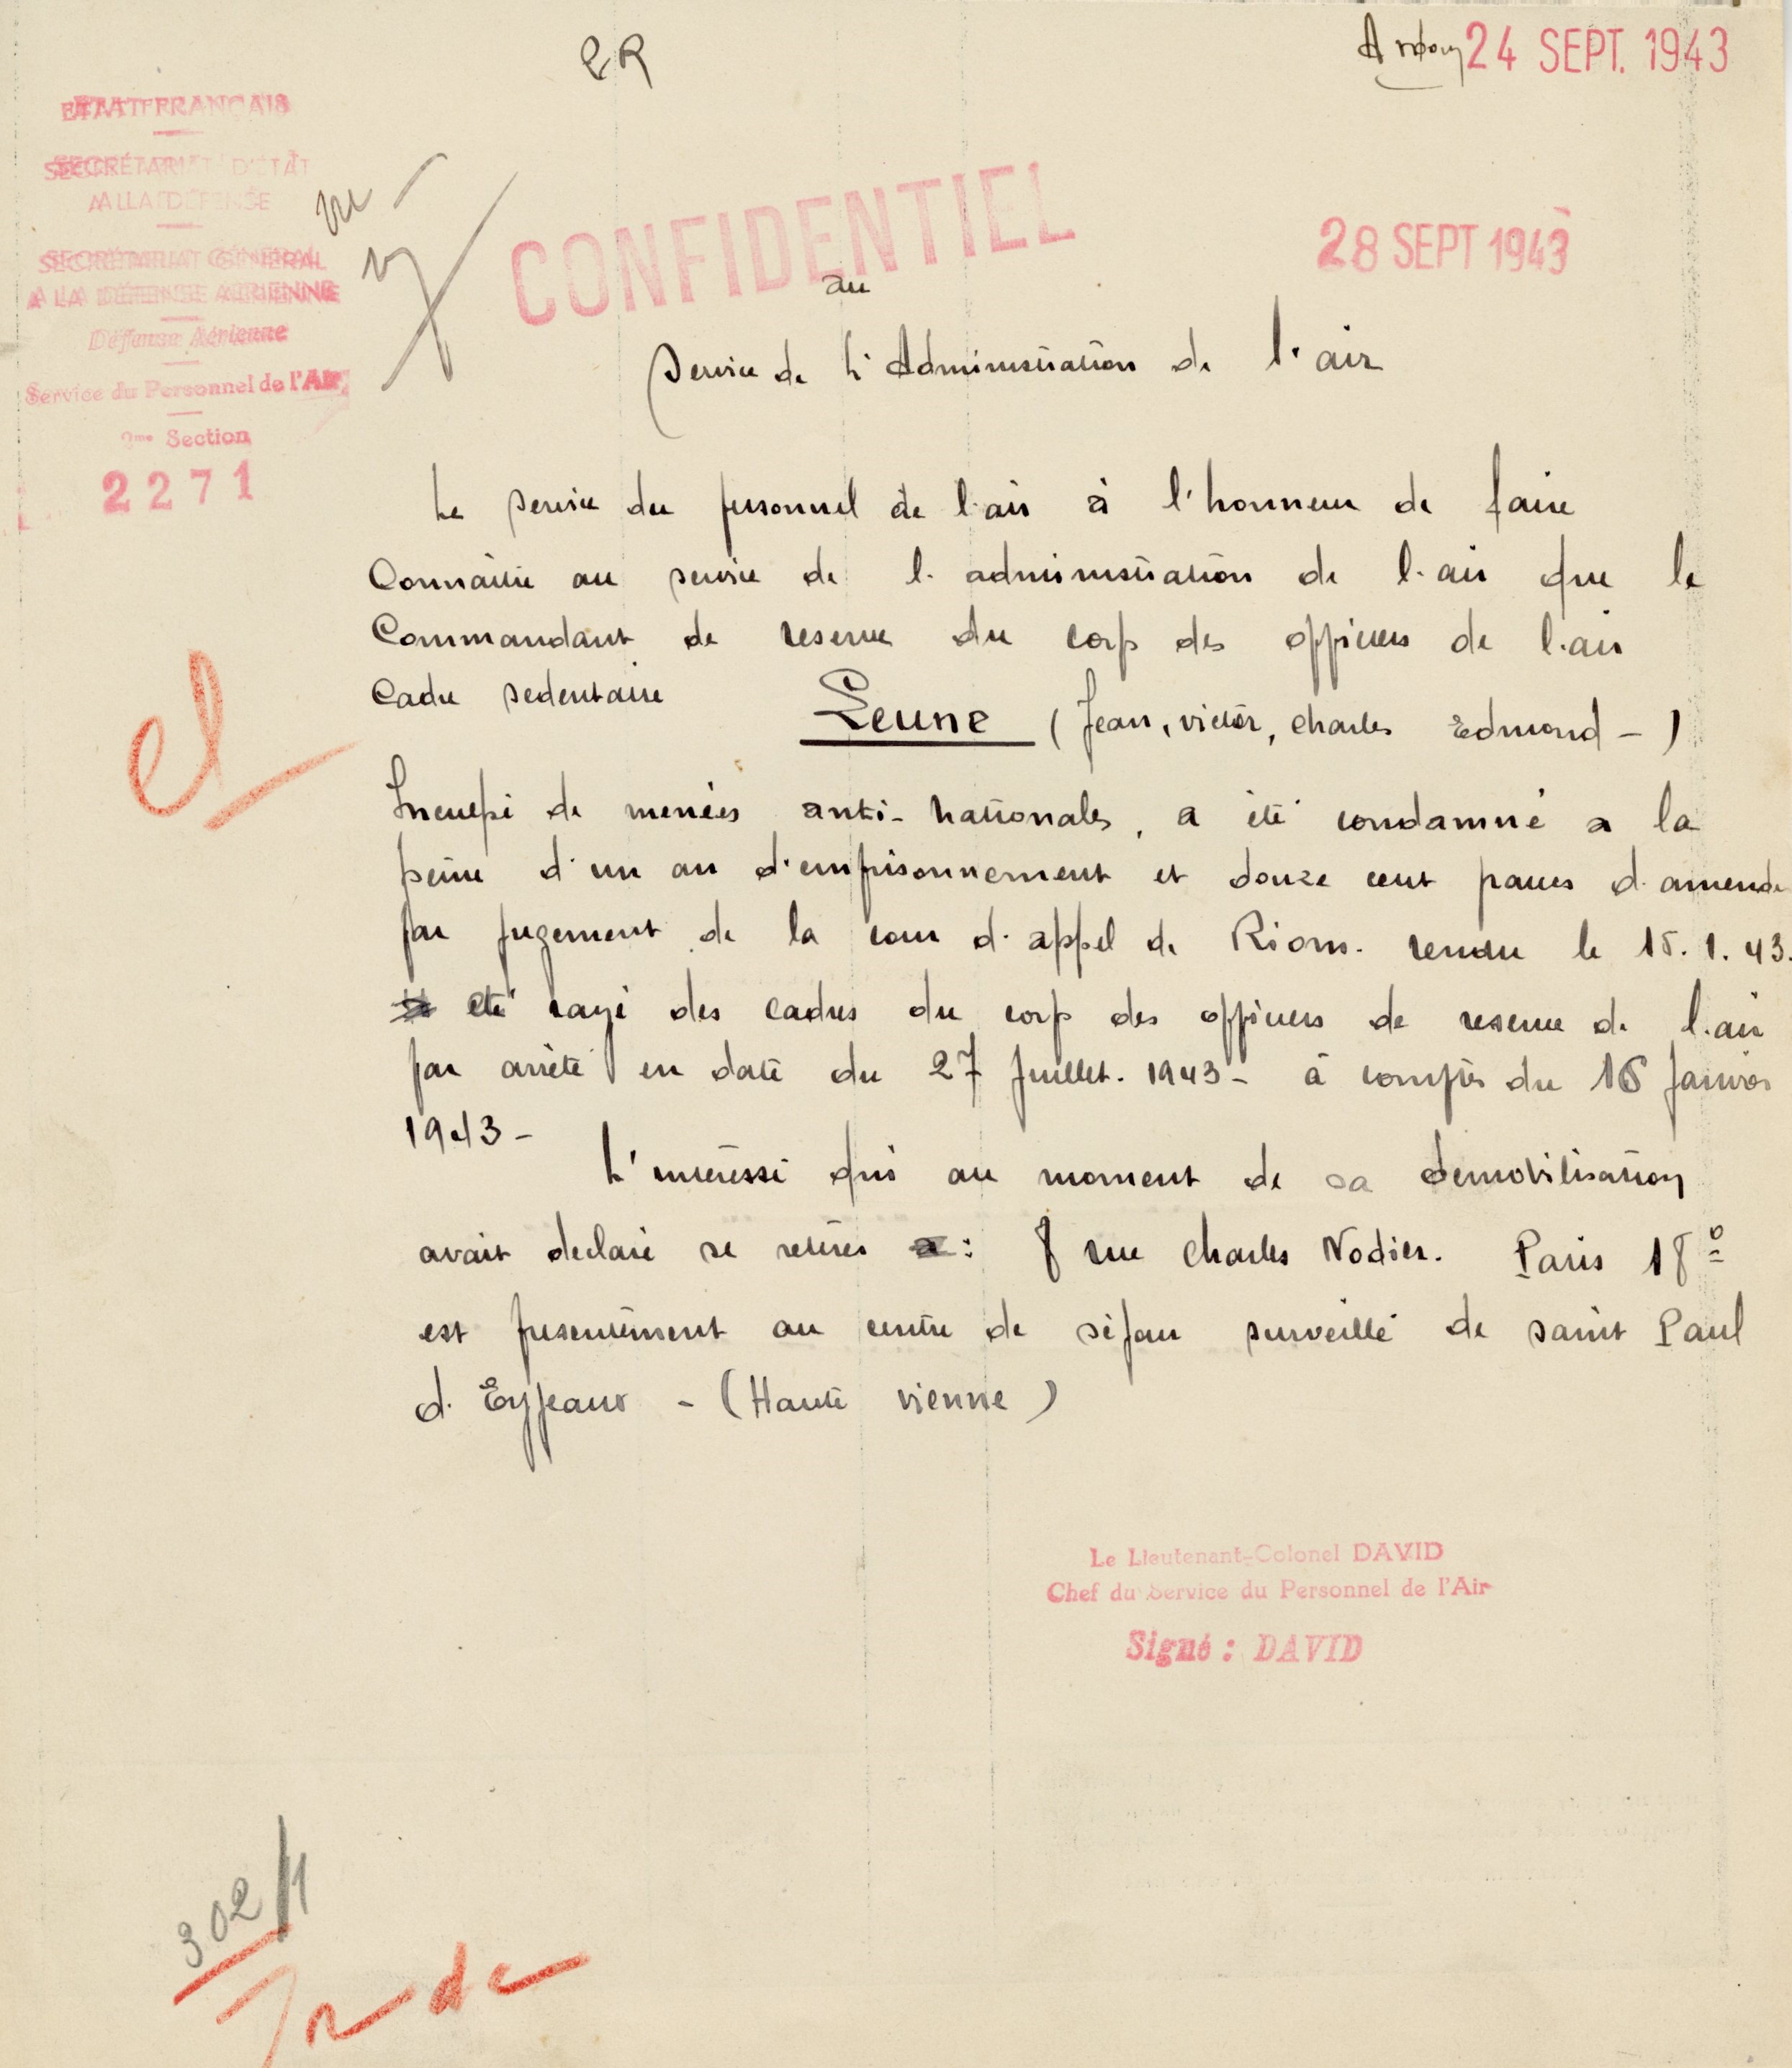 ER
24 SEPT. 1943
ETAT FRANÇAIS
SECRÉTARIAT D'ÉTAT
A LA DÉFENSE
SECRÉTARIAT GÉNÉRAL
A LA DÉFENSE AERIENNE
Défense Aérienne
Service du Personnel de l'Air
2me Section
2271
CONFIDENTIEL
28 SEPT 1943
au
Service de L'Administration de l'air
Le service du personnel de l'air à l'honneur de faire
Connaitre au service de l'administration de l'air que le
Commandant de reserve du corp des officiers de l'air
Cadre sedentaire Leune (Jean, victor, Charles Edmond - )
Inculpé de menées anti-nationales, a été condamné a la
peine d'un an d'emprisonnement et douze cent francs d'amende
par jugement de la cour d'appel de Riom. rendu le 15.1.43.
été rayé des cadres du corp des officiers de reserve de l'air
par arrêté en date du 27 Juillet. 1943 - à compter du 16 Janvier
1943 -
L'interessé qui au moment de sa demobilisation
avait declaré se retirer : 8 rue Charles Nodier. Paris 18e
est presentement au centre de séjour surveillé de saint Paul
d'Eyjeaux - (Haute vienne)
Le Lieutenant-Colonel DAVID
Chef du Service du Personnel de l'Air
Signé : DAVID
302/1